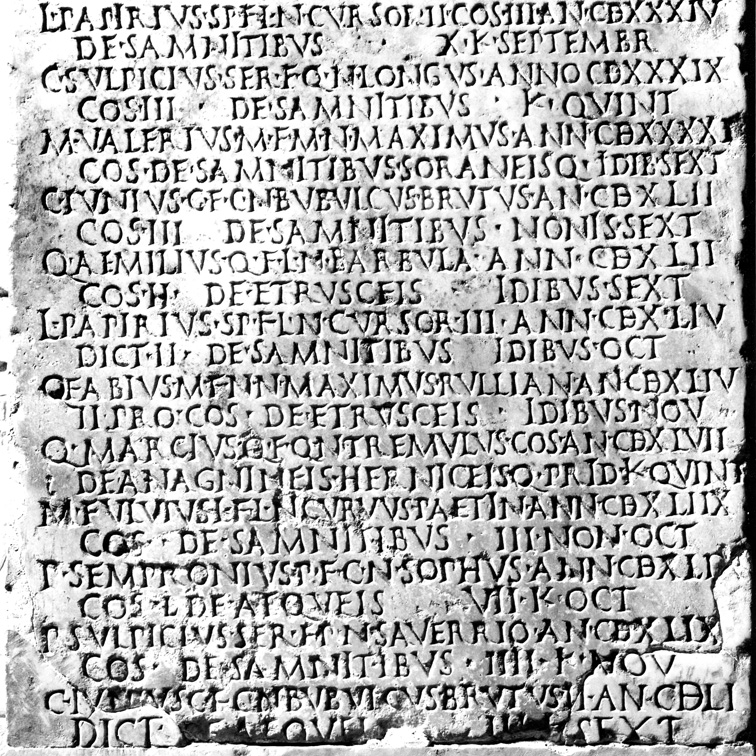 L·PAPIRIVS·SP·F·L·N·CVRSOR·II·COS·III·AN·CDXXXIV
DE·SAMNITIBVS · X·K·SEPTEMBR
C·SVLPICIVS·SER·F·Q·N·LONGVS·ANNO CDXXXIX
COS·III · DE·SAMNITIBVS · K·QVINT
M·VALERIVS·M·F·M·N·MAXIMVS·ANN·CDXXXXI
COS·DE·SAMNITIBVS·SORANEISQ·IDIB·SEXT
C·IVNIVS·C·F·C·N·BVBVLCVS·BRVTVS·AN·CDXLII
COS·III DE·SAMNITIBVS · NONIS·SEXT
Q·AEMILIVS·Q·F·L·N·BARBVLA·ANN·CDXLII
COS·II· DE·ETRVSCEIS IDIBVS·SEXT
L·PAPIRIVS·SP·F·L·N·CVRSOR·III·ANN·CDXLIV
DICT·II· DE·SAMNITIBVS IDIBVS·OCT
Q·FABIVS·M·F·N·N·MAXIMVS·RVLLIAN·AN·CDXLIV
II·PRO·COS· DE·ETRVSCEIS · IDIBVS·NOV
Q·MARCIVS·Q·F·Q·N·TREMVLVS·COS·AN·CDXLVII
DE·ANAGNINEIS·HERNICEISQ·PRID·K·QVINT
M·FVLVIVS·L·F·L·N·CVRVVS·PAETIN·ANN·CDXLIIX
COS· DE·SAMNITIBVS · III·NON·OCT
P·SEMPRONIVS·P·F·C·N·SOPHVS·ANN·CDXLI
COS· DE·AEQVEIS · VII·K·OCT
P·SVLPICIVS·SER·F·P·N·SAVERRIO·AN·CDXLIX
COS· DE·SAMNITIBVS · IIII·K·NOV
C·IVNIVS·C·F·C·N·BVBVLCVS·BRVTVS·II·AN·CDLI
DICT· SEXT